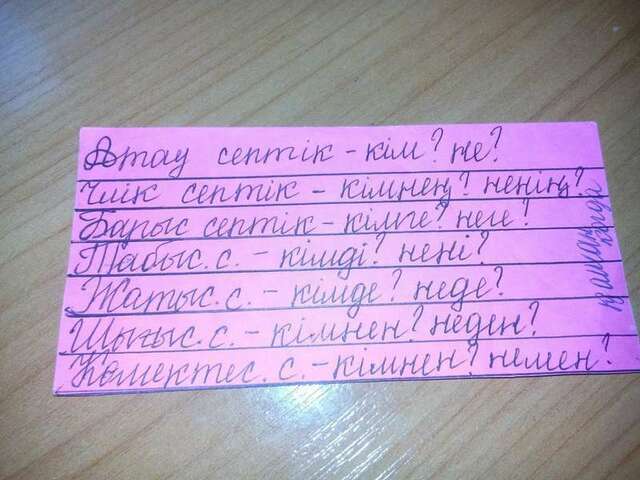 Атау септік - кім? не?
Ілік септік - кімнең? ненің?
Барыс септік - кімге? неге?
Табыс. с. - кімді? нені?
Жатыс. с. - кімде? неде?
Шығыс. с. - кімнен? неден?
Көмектес. с. - кімнен? немен?